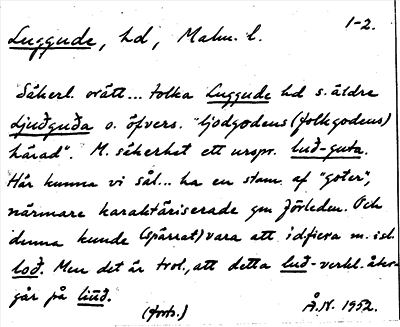 1-2.
Luggude, hd, Malm. l.
Säkerl. orätt... tolka Luggude hd s. äldre
Ljuðguða o. öfvers. "ljodgodens (folkgodens)
härad". M. säkerhet ett urspr. luð-guta.
Här kunna vi sål... ha en stam af "goter",
närmare karaktäriserade gm förleden. Och
denna kunde (spärrat) vara att idfiera m. isl.
loð. Men det är trol., att detta luð- verkl. åter-
går på liuð.
(forts.) Å.N. 1952.